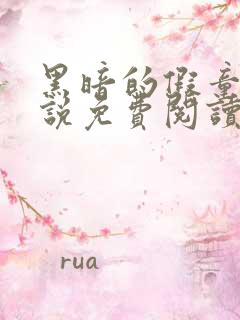 黑暗的假童
說免費閱讀
rua